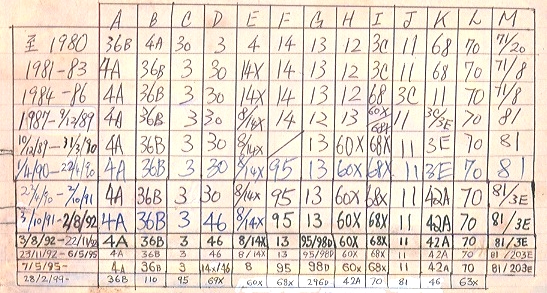 A B C D E F G H I J K L M
至 1980 36B 4A 30 3 4 14 13 12 3C 11 68 70 71/20
1981-83 4A 36B 3 30 14X 14 13 12 3C 11 68 70 71/8
1984-86 4A 36B 3 30 14X 14 13 12 68 3C 11 70 71/8
1987-9/12/89 4A 36B 3 30 8/14X 14 13 12 60X/68X 11 3C/3E 70 81
10/12/89-31/3/90 4A 36B 3 30 8/14X / 13 60X 68X 11 3E 70 81
1/4/90-22/4/90 4A 36B 3 30 8/14X 95 13 60X 68X 11 3E 70 81
23/4/90-2/10/91 4A 36B 3 30 8/14X 95 13 60X 68X 11 42A 70 81/3E
3/10/91-2/8/92 4A 36B 3 46 8/14X 95 13 60X 68X 11 42A 70 81/3E
3/8/92-22/11/92 4A 36B 3 46 8/14X 13 95/98D 60X 68X 11 42A 70 81/3E
23/11/92-6/5/95 4A 36B 3 46 8/14X 13 95/98D 60X 68X 11 42A 70 81/203E
7/5/95- 4A 36B 3 14X/46 8 95 98D 60X 68X 11 42A 70 81/203E
28/2/99- 36B 110 95 69X 60X 68X 296D 42A 70 81 46 63X